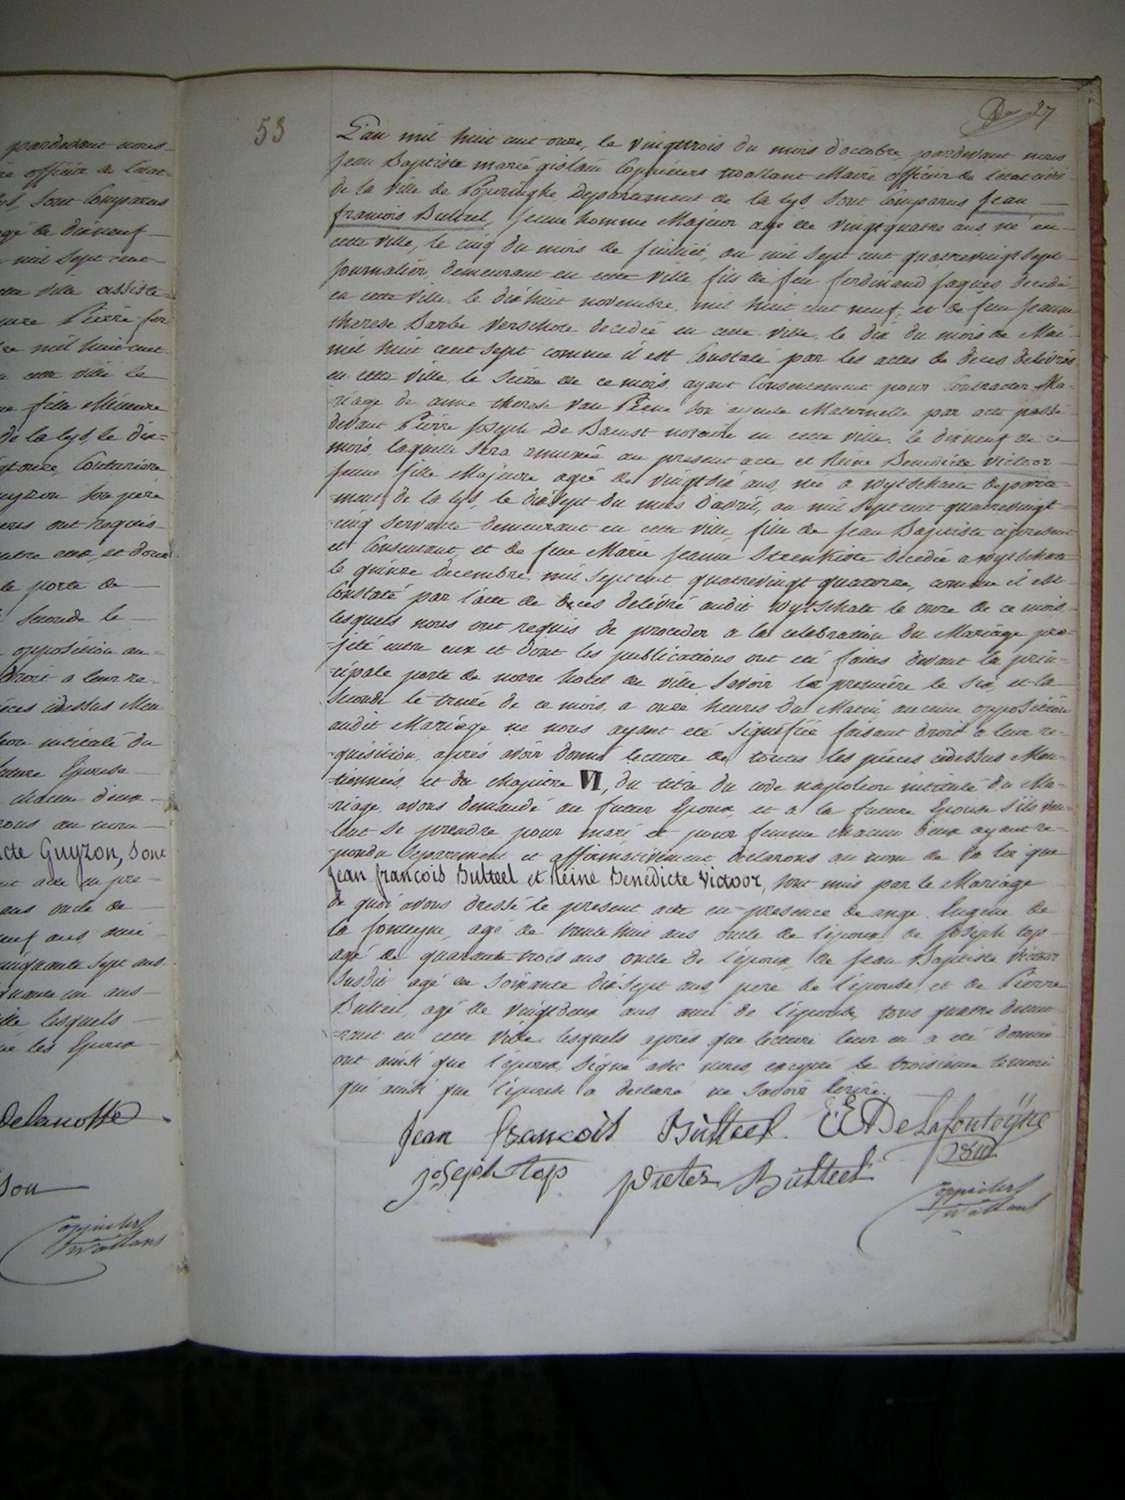 pardevant nous
officier de l'état
sont Comparus
agé de dixneuf
mil Sept cent
cette ville assisté
Pierre
mil huit cent
cette ville le
fille Mineure
de la Lys, le dix=
Couturiere
Guyzon son père
ont requis
entre eux, et dont
porte de
Seconde le
opposition au=
droit a leur re-
pièces cidessus Men
intitulé du
future Epouse
chacun d'eux
au nom
Guyzon, Sont
acte en pre-
ans oncle de
neuf ans ami
cinquante Sept ans
ans
ville lesquels
que les Epoux
Delanotte
Coppieters
Wallans
53
27
L'an mil huit cent onze, le vingttrois du mois d'octobre, pardevant nous
Jean Baptiste marie gislain Coppieters Maire officier de l'etat civil
de la Ville de Poperinghe Departement de la Lys, Sont Comparus Jean
francois Bulteel, Jeune homme Majeur agé de vingtquatre ans, né en
cette ville, le cinq du mois de Juillet, an mil Sept cent quatrevingt Sept
Journalier, demeurant en cette Ville fils de feu ferdinand Jaques decedé
en cette Ville le dixhuit novembre, mil huit cent neuf, et de feue Jeanne
therese Barbe Verschore decedée en cette Ville le dix du mois de Mai
mil huit cent sept comme il est Constaté par les actes de deces delivrés
en cette Ville le Seize de ce mois, ayant Consentement pour Contracter Ma-
riage de anne therese Van son ayeule Maternelle par acte passé
devant Pierre Joseph De Baenst notaire en cette Ville, le dixneuf de ce
mois, laquelle Sera annexée au present acte et Reine Benedicte Victoor
Jeune fille Majeure agée de vingtsix ans, née a Wytschaete Departe-
ment de la Lys, le dixSept du mois d'avril, an mil Sept cent quatrevingt
cinq Servante demeurant en cette Ville, fille de Jean Baptiste cipresent
et Consentant, et de feue Marie Jeanne Steenkiste decedée a Wytschaete
le quinze decembre, mil Sept cent quatrevingt quatorze, comme il est
Constaté par l'acte de deces delivré audit Wytschate le onze de ce mois,
lesquels nous ont requis de proceder a la celebration du Mariage pro-
jeté entre eux et dont les publications ont été faites devant la prin-
cipale porte de notre hotel de ville Savoir la première le Six, et la
Seconde le treize de ce mois, a onze heures du Matin aucune opposition
audit Mariage ne nous ayant été Signifiée faisant droit a leur re-
quisition, après avoir donné lecture de toutes les pièces cidessus Men-
tionnées, et du chapitre VI, du titre du code napoleon intitulé du Ma-
riage, avons demandé au futur Epoux, et a la future Epouse s'ils veu-
lent se prendre pour mari et pour femme chacun deux ayant re-
pondu Separement et affirmativement declarons au nom de la loi que
Jean francois Bulteel et Reine Benedicte Victoor, Sont unis par le Mariage
de quoi avons dressé le present acte en presence de ange Eugène de
la fonteyne, agé de trente huit ans oncle de l'epoux, de Joseph top
agé de quarante trois ans oncle de l'epoux, de Jean Baptiste Victoor
Susdit agé de Soixante dixSept ans, pere de l'épouse, et de Pierre
Bulteel, agé de vingtdeux ans ami de l'epouse, tous quatre demeu-
rant en cette Ville lesquels après que lecture leur en a été donnée
ont ainsi que l'epoux, Signé avec nous, excepté le troisieme temoin
qui ainsi que l'epouse a declaré ne savoir Ecrire.
Jean francois Bulteel. E A DeLafonteyne
1811
Joseph top pieter Bulteel
Coppieters
Wallans